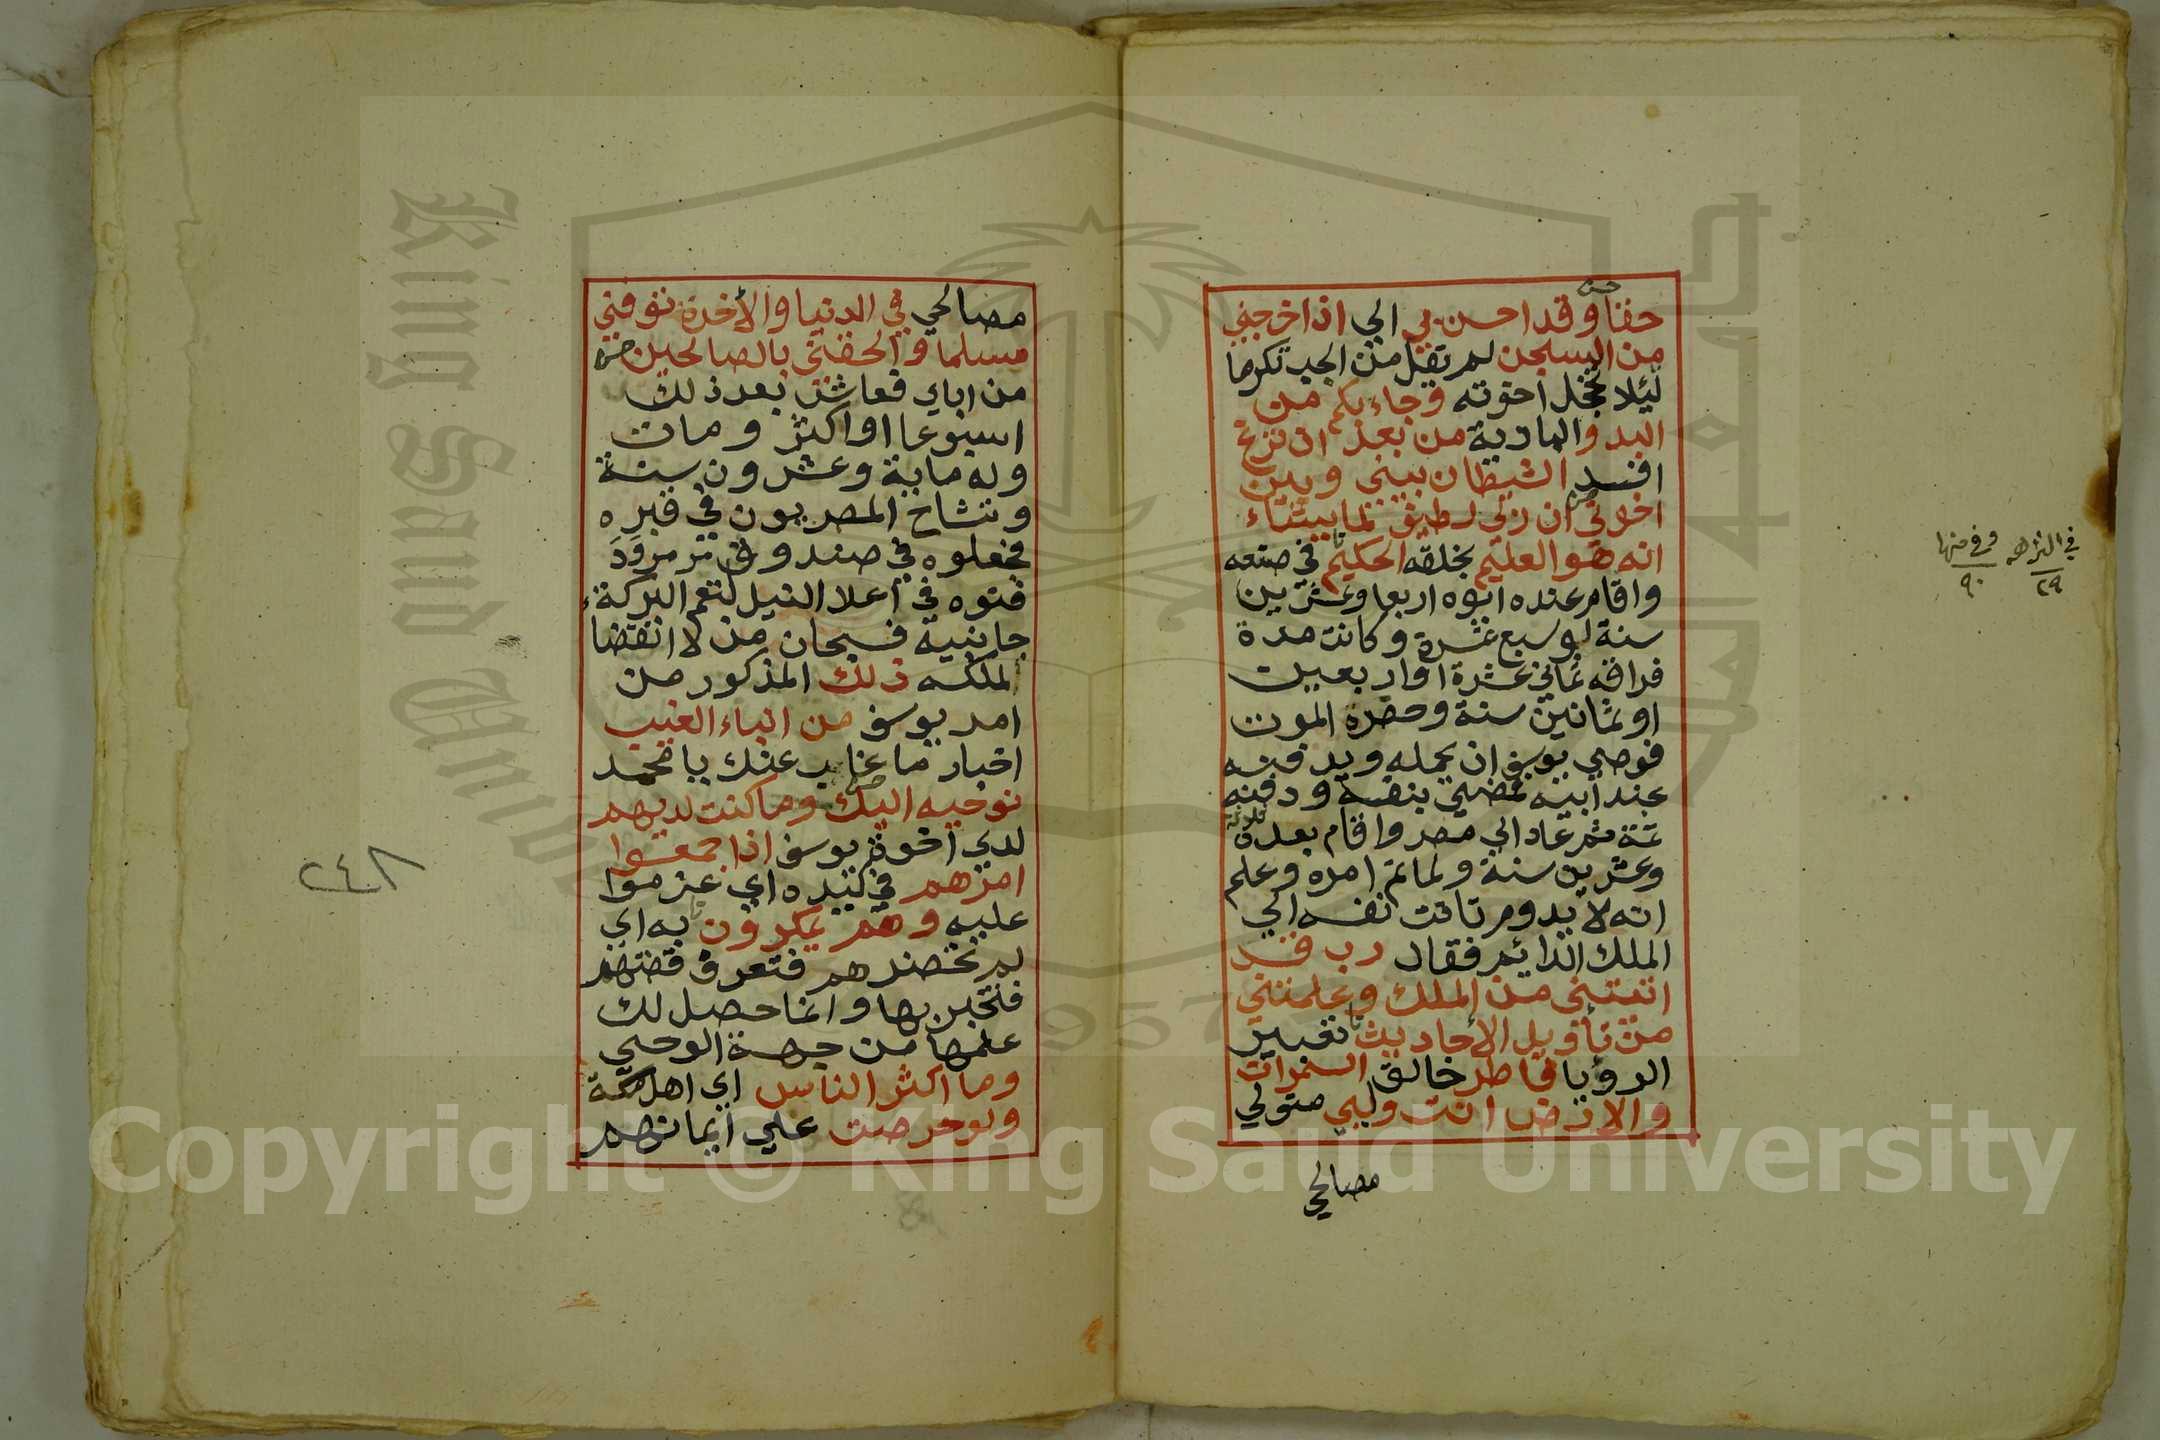 حقا وقد احسن بي الي اذ اخرجني
من السجن لم يقل من الجب تكرما
ليلا تخجل اخوته وجاء بكم من
البدو البادية من بعد ان نزغ
افسد الشيطان بيني وبين
اخوتي ان ربي لطيف لما يشاء
انه هو العليم بخلقه الحكيم في صنعه
واقام عنده ابوه اربعا وعشرين
سنة او سبع عشرة وكانت مدة
فراقه ثماني عشرة او اربعين
او ثمانين سنة وحضره الموت
فوصي يوسف ان يحمله ويدفنه
عند ابيه فمضي بنفسه ودفنه
ثمة ثم عاد الي مصر واقام بعده ثلاثة
وعشرين سنة ولما تم امره وعلم
انه لا يدوم تاقت نفسه الي
الملك الدايم فقال رب قد
اتيتني من الملك وعلمتني
من تأويل الاحاديث تعبير
الرؤيا فاطر خالق السموات
والارض انت وليي متولي
مصالحي
في النزاهه وفي منها
٢٩ ٩٠
مصالحي في الدنيا والأخرة توفني
مسلما والحقني بالصالحين
من اباي فعاش بعد ذلك
اسبوعا او اكثر ومات
وله ماية وعشرون سنة
وتشاح المصريون في قبره
فجعلوه في صندوق مرمر ود
فنوه في اعلا النيل لتعم البركة
جانبيه فسبحان من لا انقضا
لملكه ذلك المذكور من
امر يوسف من انباء الغيب
اخبار ما غاب عنك يا محمد
نوحيه اليك وما كنت لديهم
لدي اخوة يوسف اذ اجمعوا
امرهم في كيده اي عزموا
عليه وهم يمكرون به اي
لم تحضرهم فتعرف قصتهم
فتخبر بها وانما حصل لك
علمها من جهة الوحي
وما اكثر الناس اي اهل مكة
ولو حرصت علي ايمانهم
٢٤٨
King Saud University
1957
Copyright © King Saud University